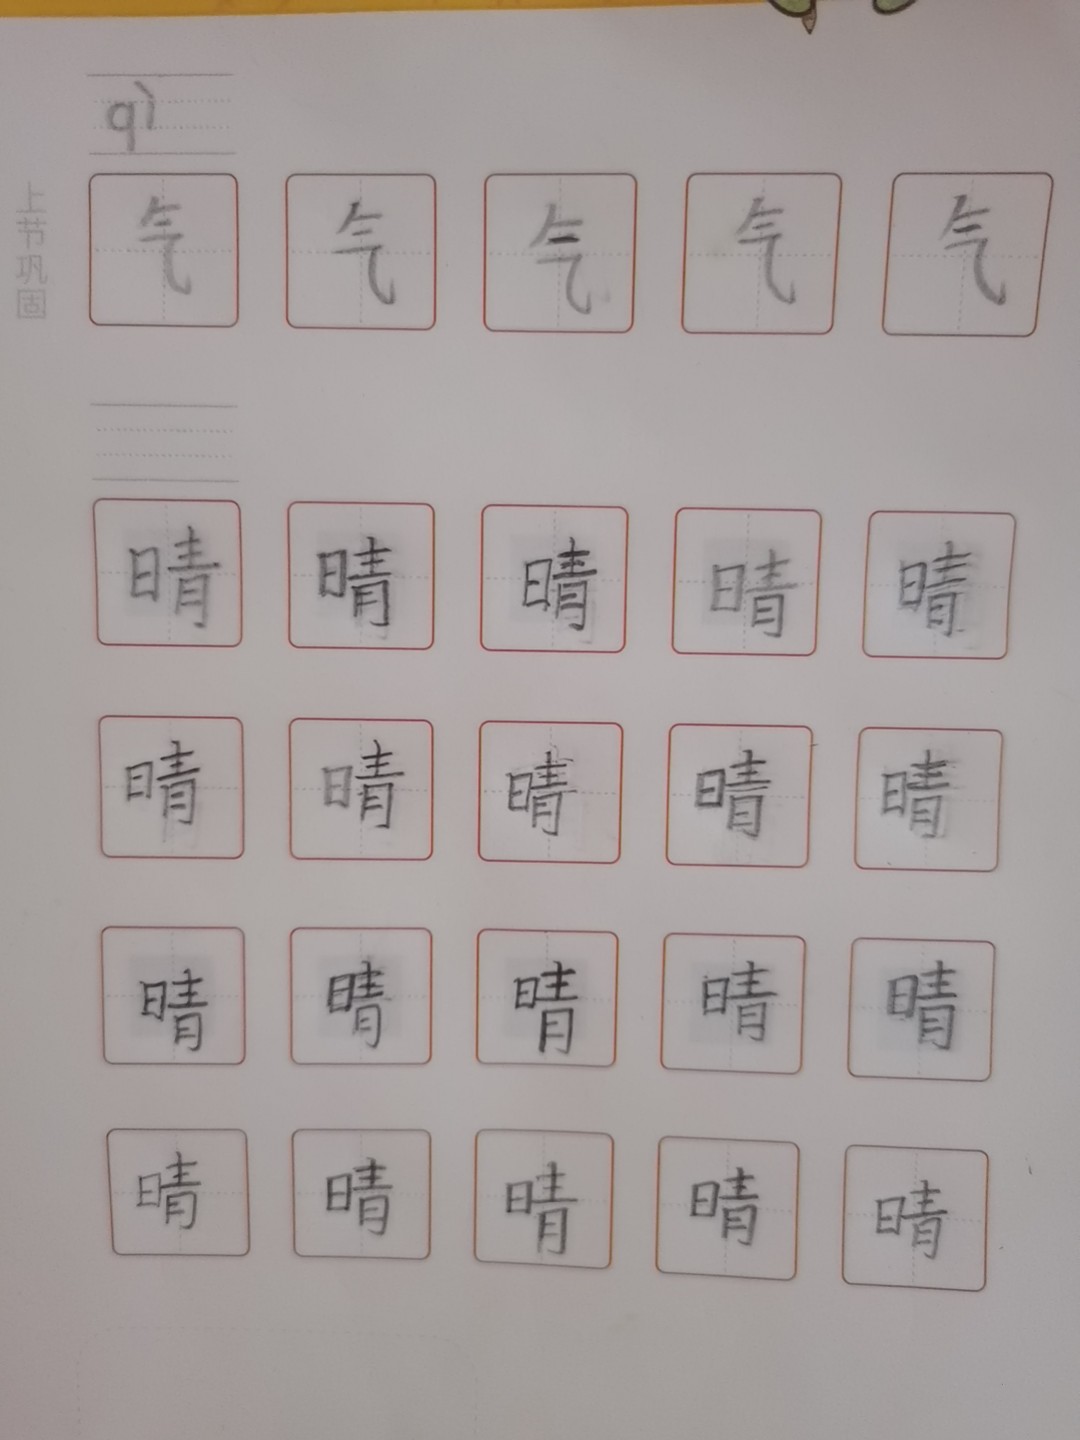 qì
上节巩固
气 气 气 气 气
晴 晴 晴 晴 晴
晴 晴 晴 晴 晴
晴 晴 晴 晴 晴
晴 晴 晴 晴 晴